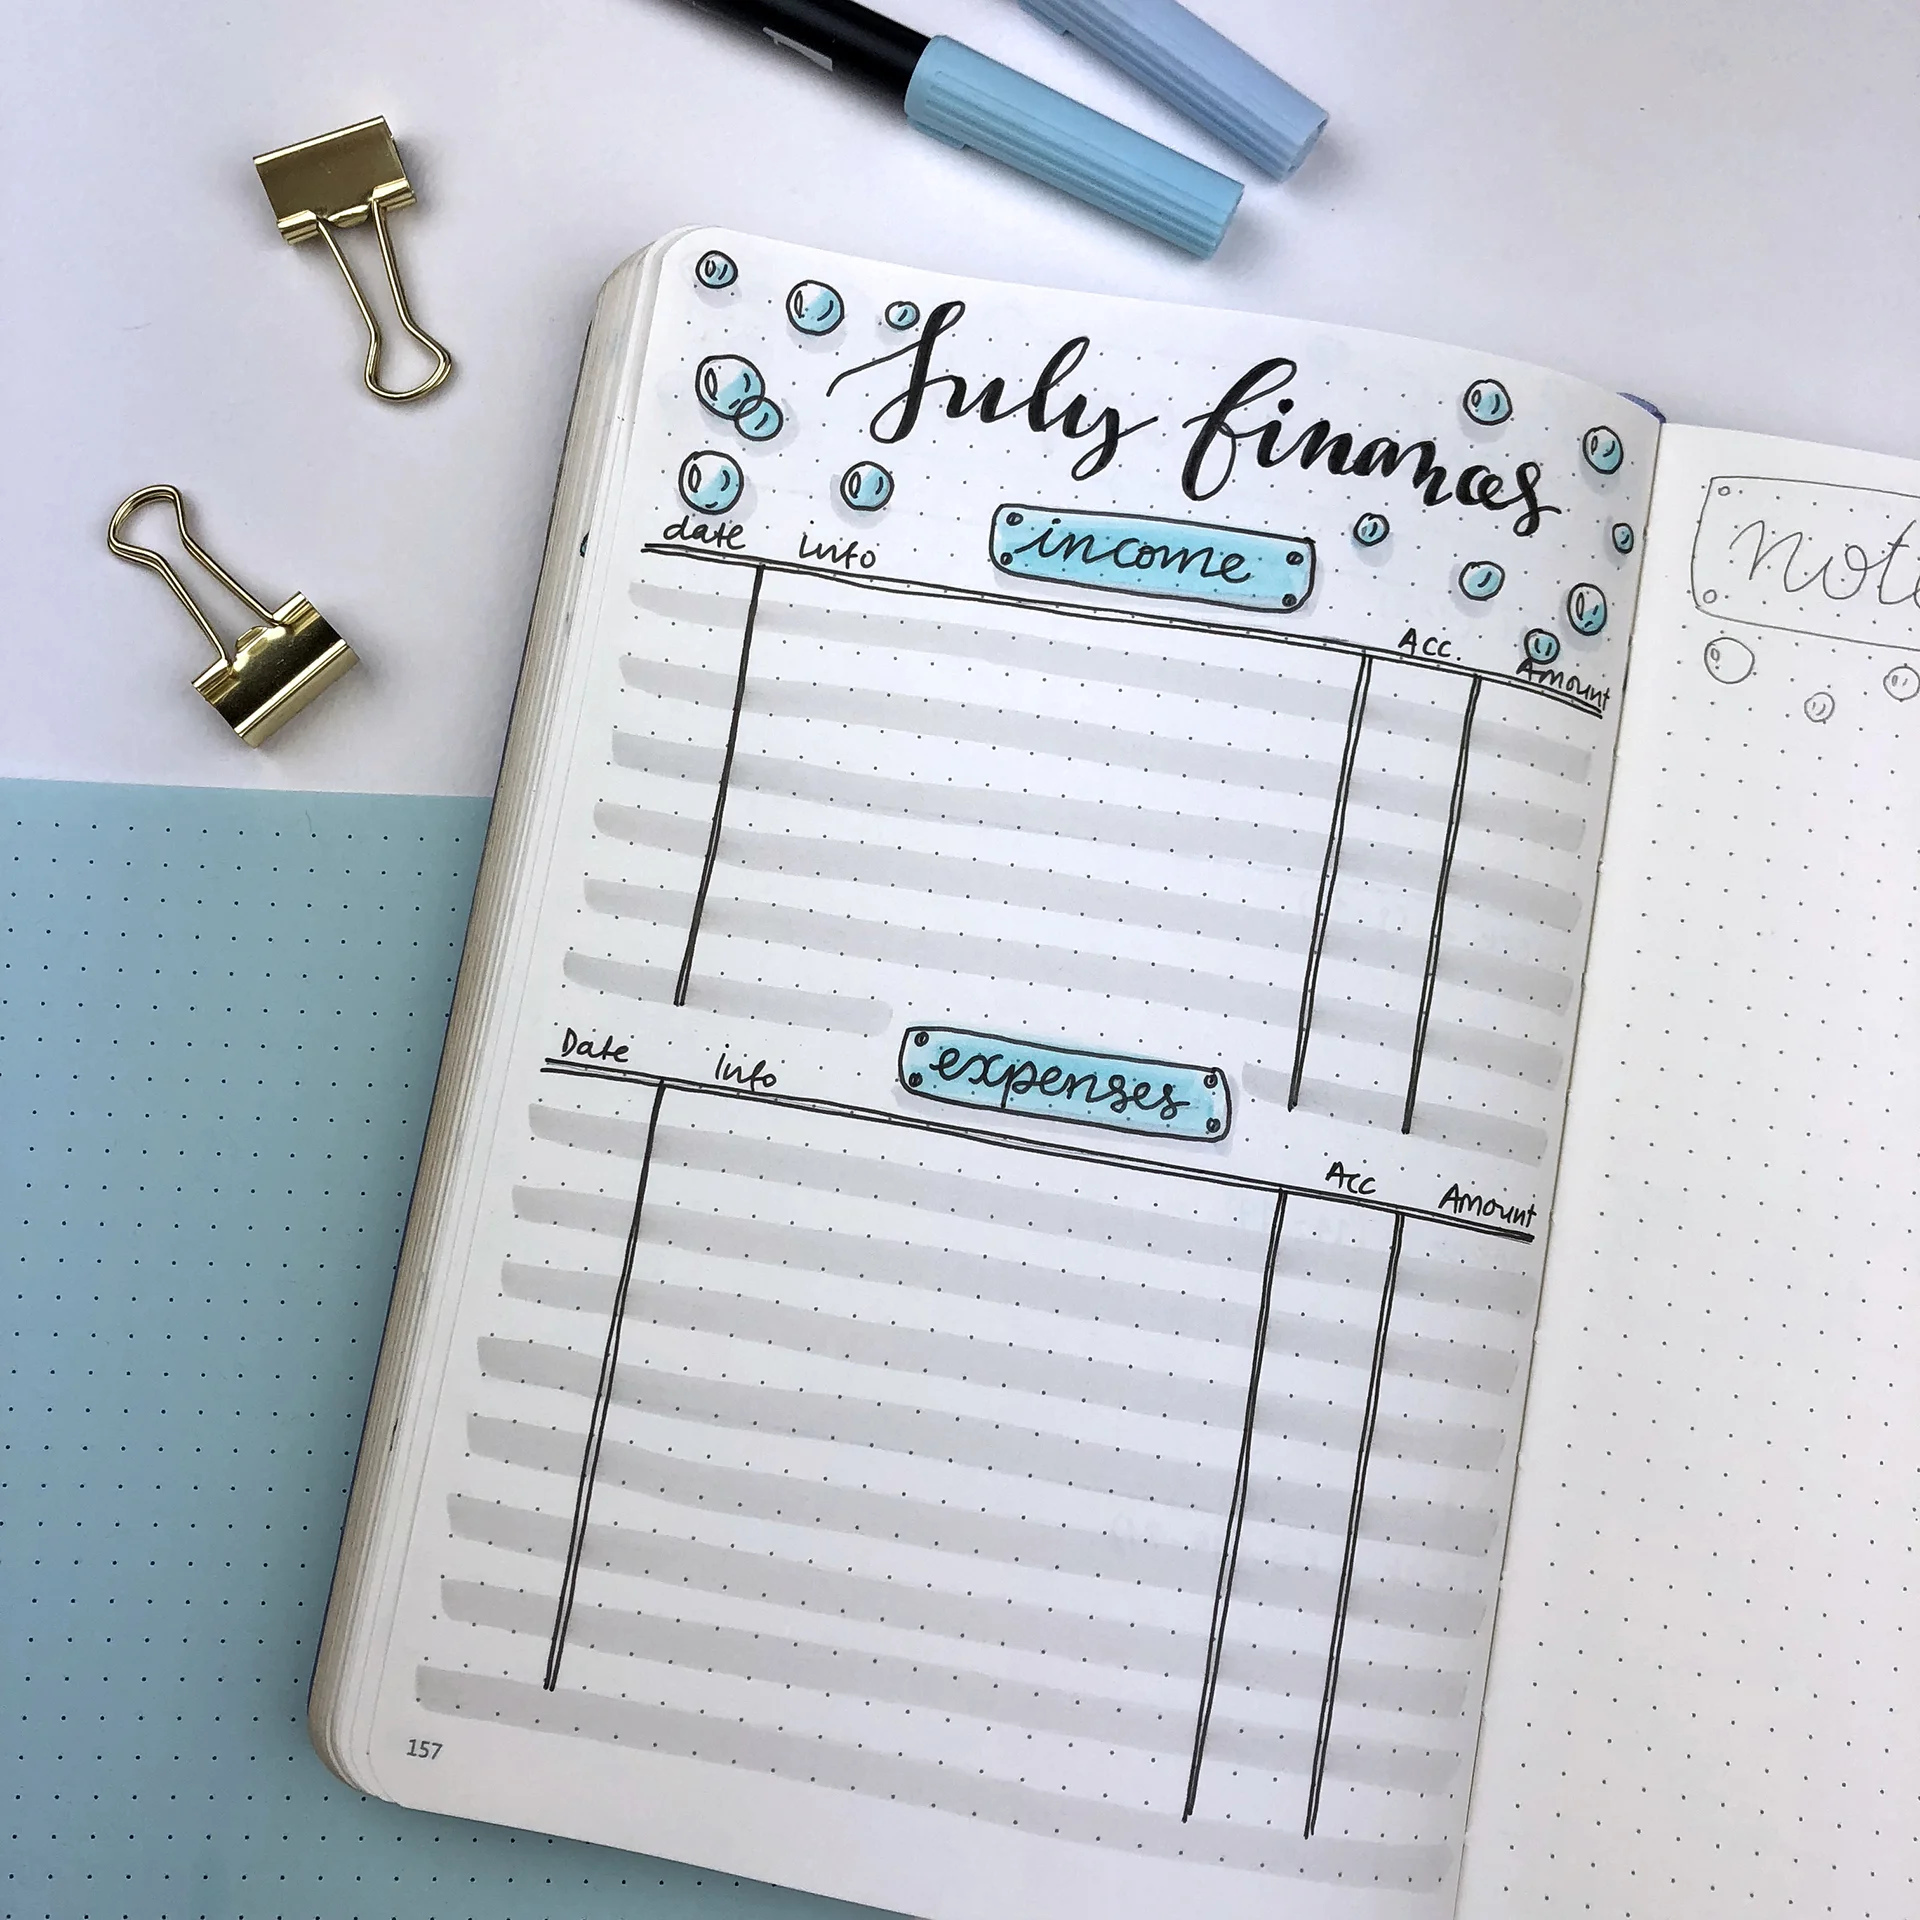 July finances
date info income Acc. Amount
Date info expenses Acc Amount
157